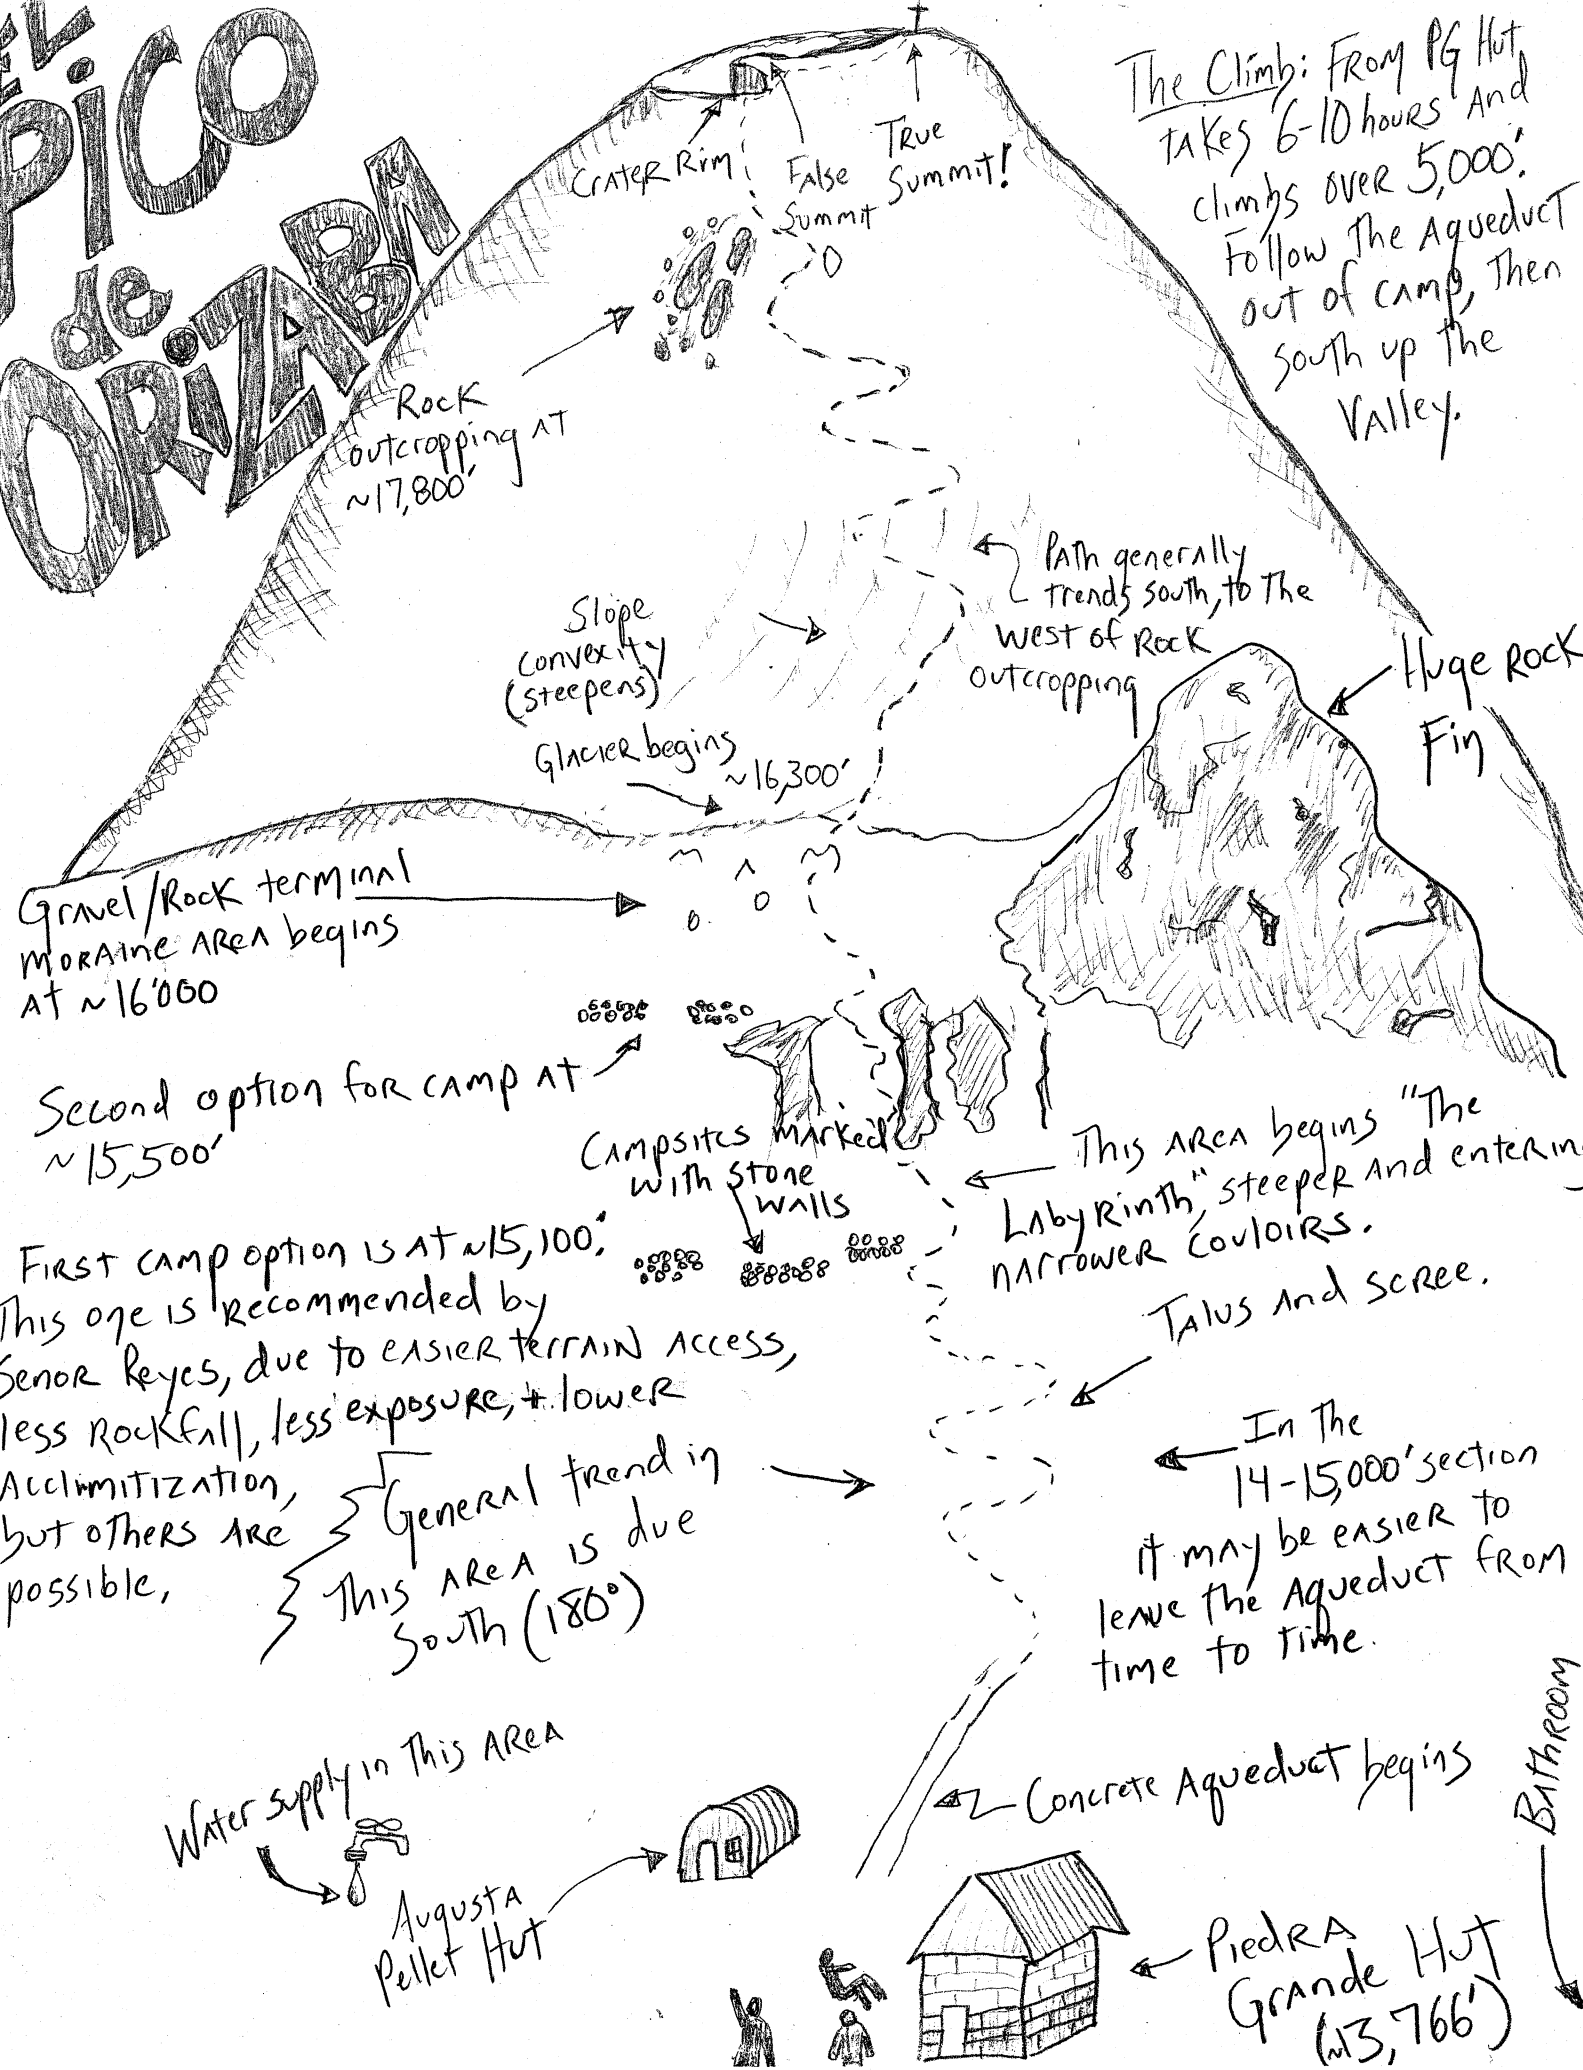 EL
PICO
de
ORIZABA
The Climb: From PG Hut,
takes 6-10 hours And
climbs over 5,000'.
Follow the Aqueduct
out of camp, then
south up the
Valley.
Crater Rim
False
Summit
True
Summit!
Rock
outcropping at
~17,800'
Path generally
trends south, to the
west of Rock
outcropping
Slope
convexity
(steepens)
Huge Rock
Fin
Glacier begins
~16,300'
Gravel/Rock terminal
moraine area begins
at ~16'000
Second option for camp at
~15,500'
Campsites marked
with stone
walls
This area begins "The
Labyrinth", steeper and entering
narrower couloirs.
First camp option is at ~15,100'.
This one is recommended by
Senor Reyes, due to easier terrain access,
less Rockfall, less exposure, + lower
Acclimitization,
but others are
possible,
Talus and scree.
General trend in
this area is due
South (180°)
In the
14-15,000' section
it may be easier to
leave the Aqueduct from
time to time.
Water supply in this area
Concrete Aqueduct begins
Bathroom
Augusta
Pellet Hut
Piedra
Grande Hut
(~13,766')